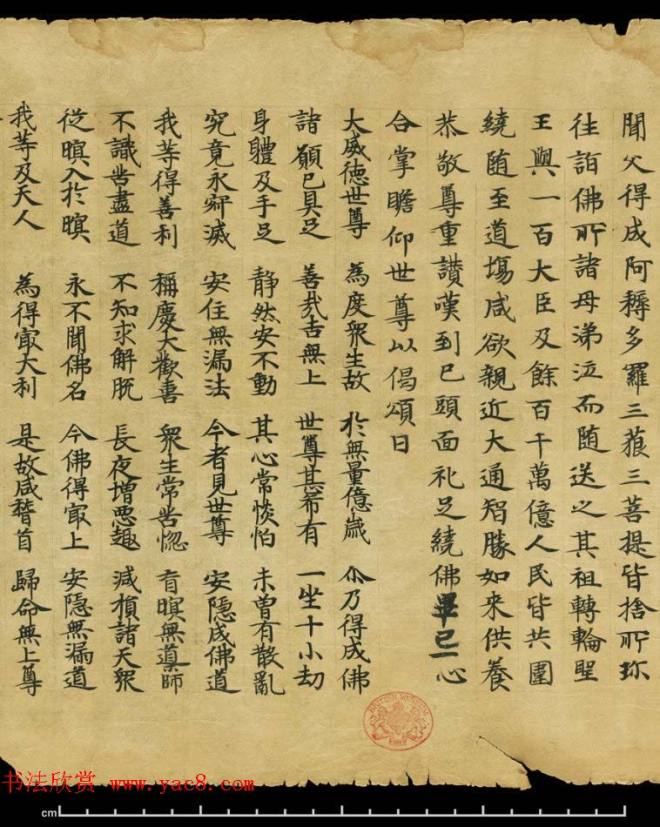 聞父得成阿耨多羅三藐三菩提皆捨所珎
往詣佛所諸母涕泣而随送之其祖轉輪聖
王與一百大臣及餘百千萬億人民皆共圍
繞随至道場咸欲親近大通智勝如来供養
恭敬尊重讃嘆到已頭面礼足繞佛畢已一心
合掌瞻仰世尊以偈頌曰
大威德世尊 為度衆生故 於無量億歲 尒乃得成佛
諸願已具足 善哉吉無上 世尊甚希有 一坐十小劫
身體及手足 静然安不動 其心常惔怕 未曽有散亂
究竟永寂滅 安住無漏法 今者見世尊 安隱成佛道
我等得善利 稱慶大歡喜 衆生常苦惱 盲瞑無導師
不識苦盡道 不知求解脫 長夜增惡趣 減損諸天衆
從瞑入於瞑 永不聞佛名 今佛得冣上 安隱無漏道
我等及天人 為得冣大利 是故咸稽首 歸命無上尊
书法欣赏 www.yac8.com
cm